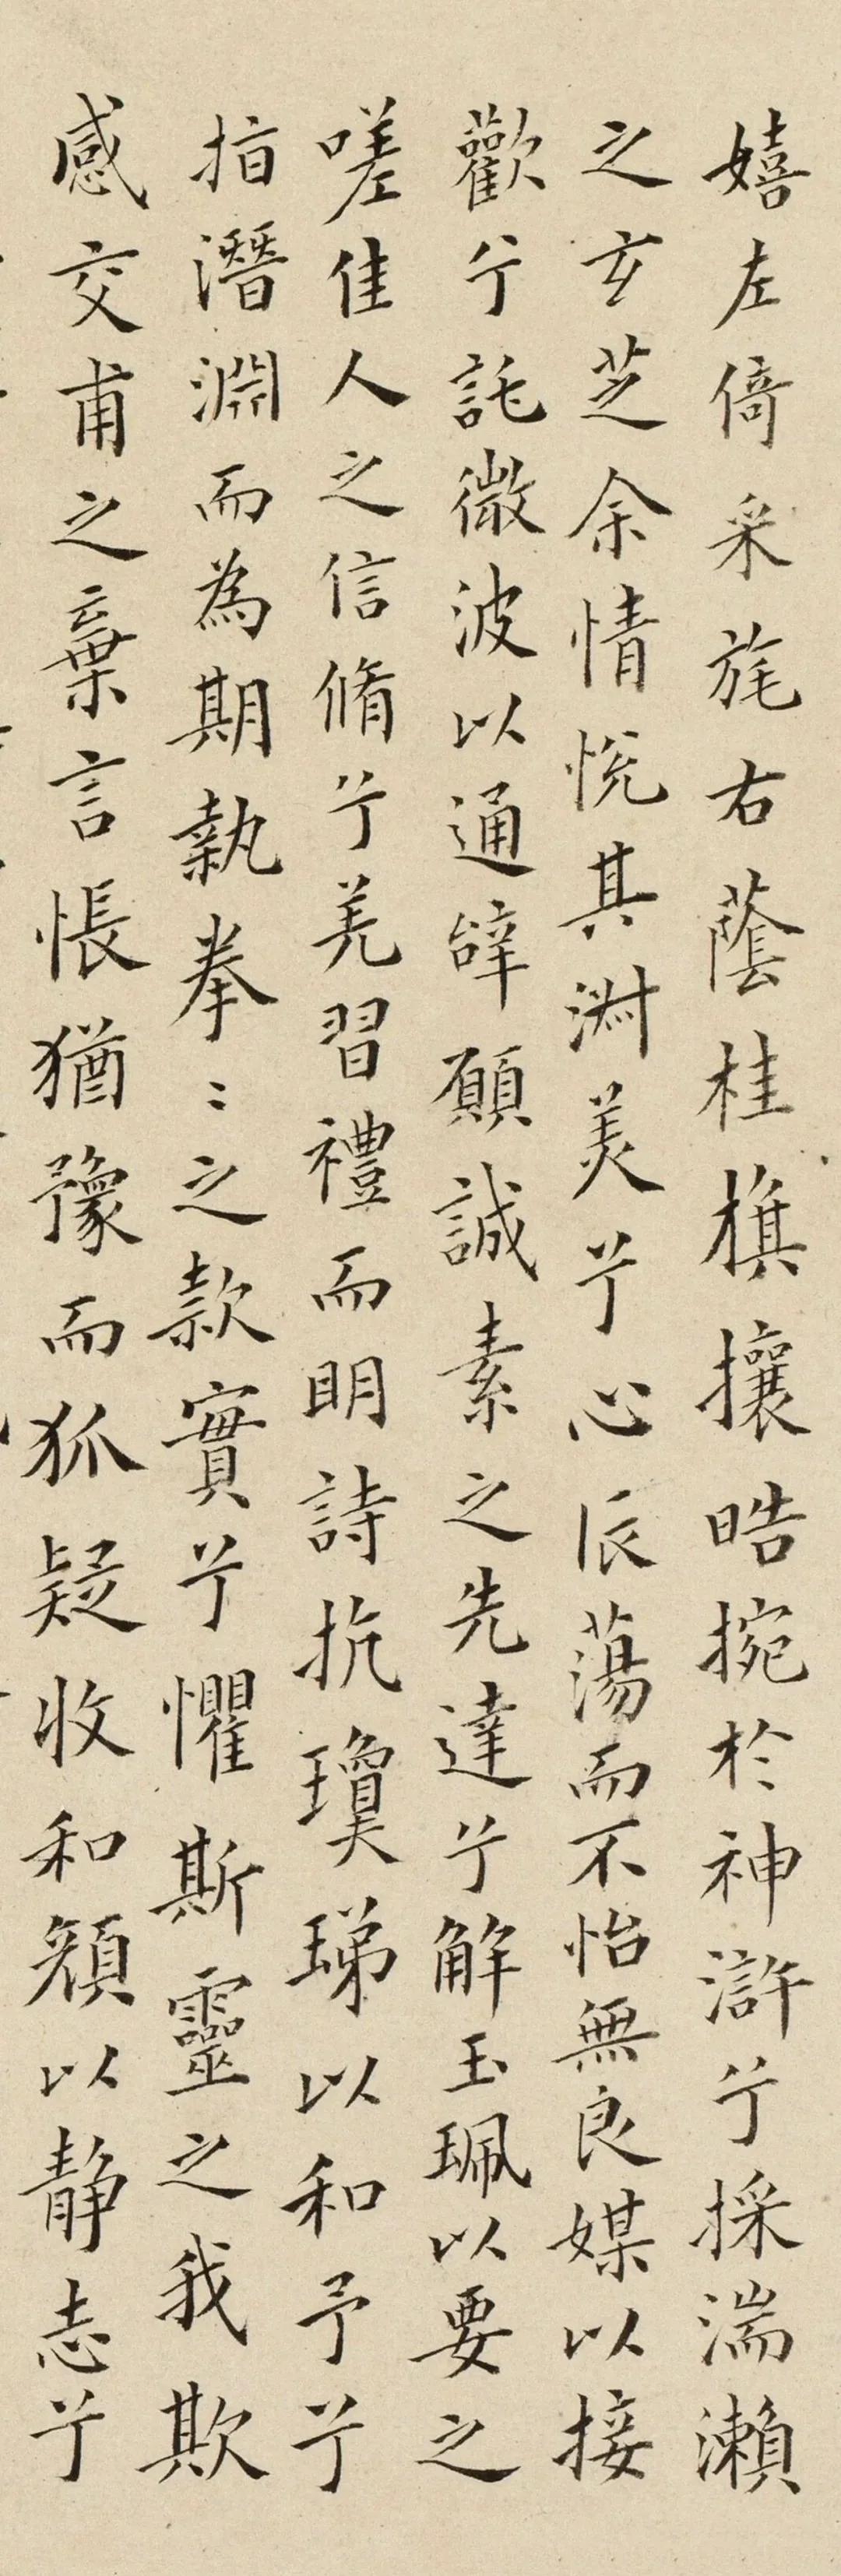 嬉左倚采旄右蔭桂旗攘晧捥於神滸兮採湍瀨
之玄芝余情悅其淑美兮心辰蕩而不怡無良媒以接
歡兮託微波以通辝願誠素之先達兮解玉珮以要之
嗟佳人之信脩兮羌習禮而明詩抗瓊珶以和予兮
指潛淵而為期執拳〻之款實兮懼斯靈之我欺
感交甫之棄言悵猶豫而狐疑收和顏以靜志兮